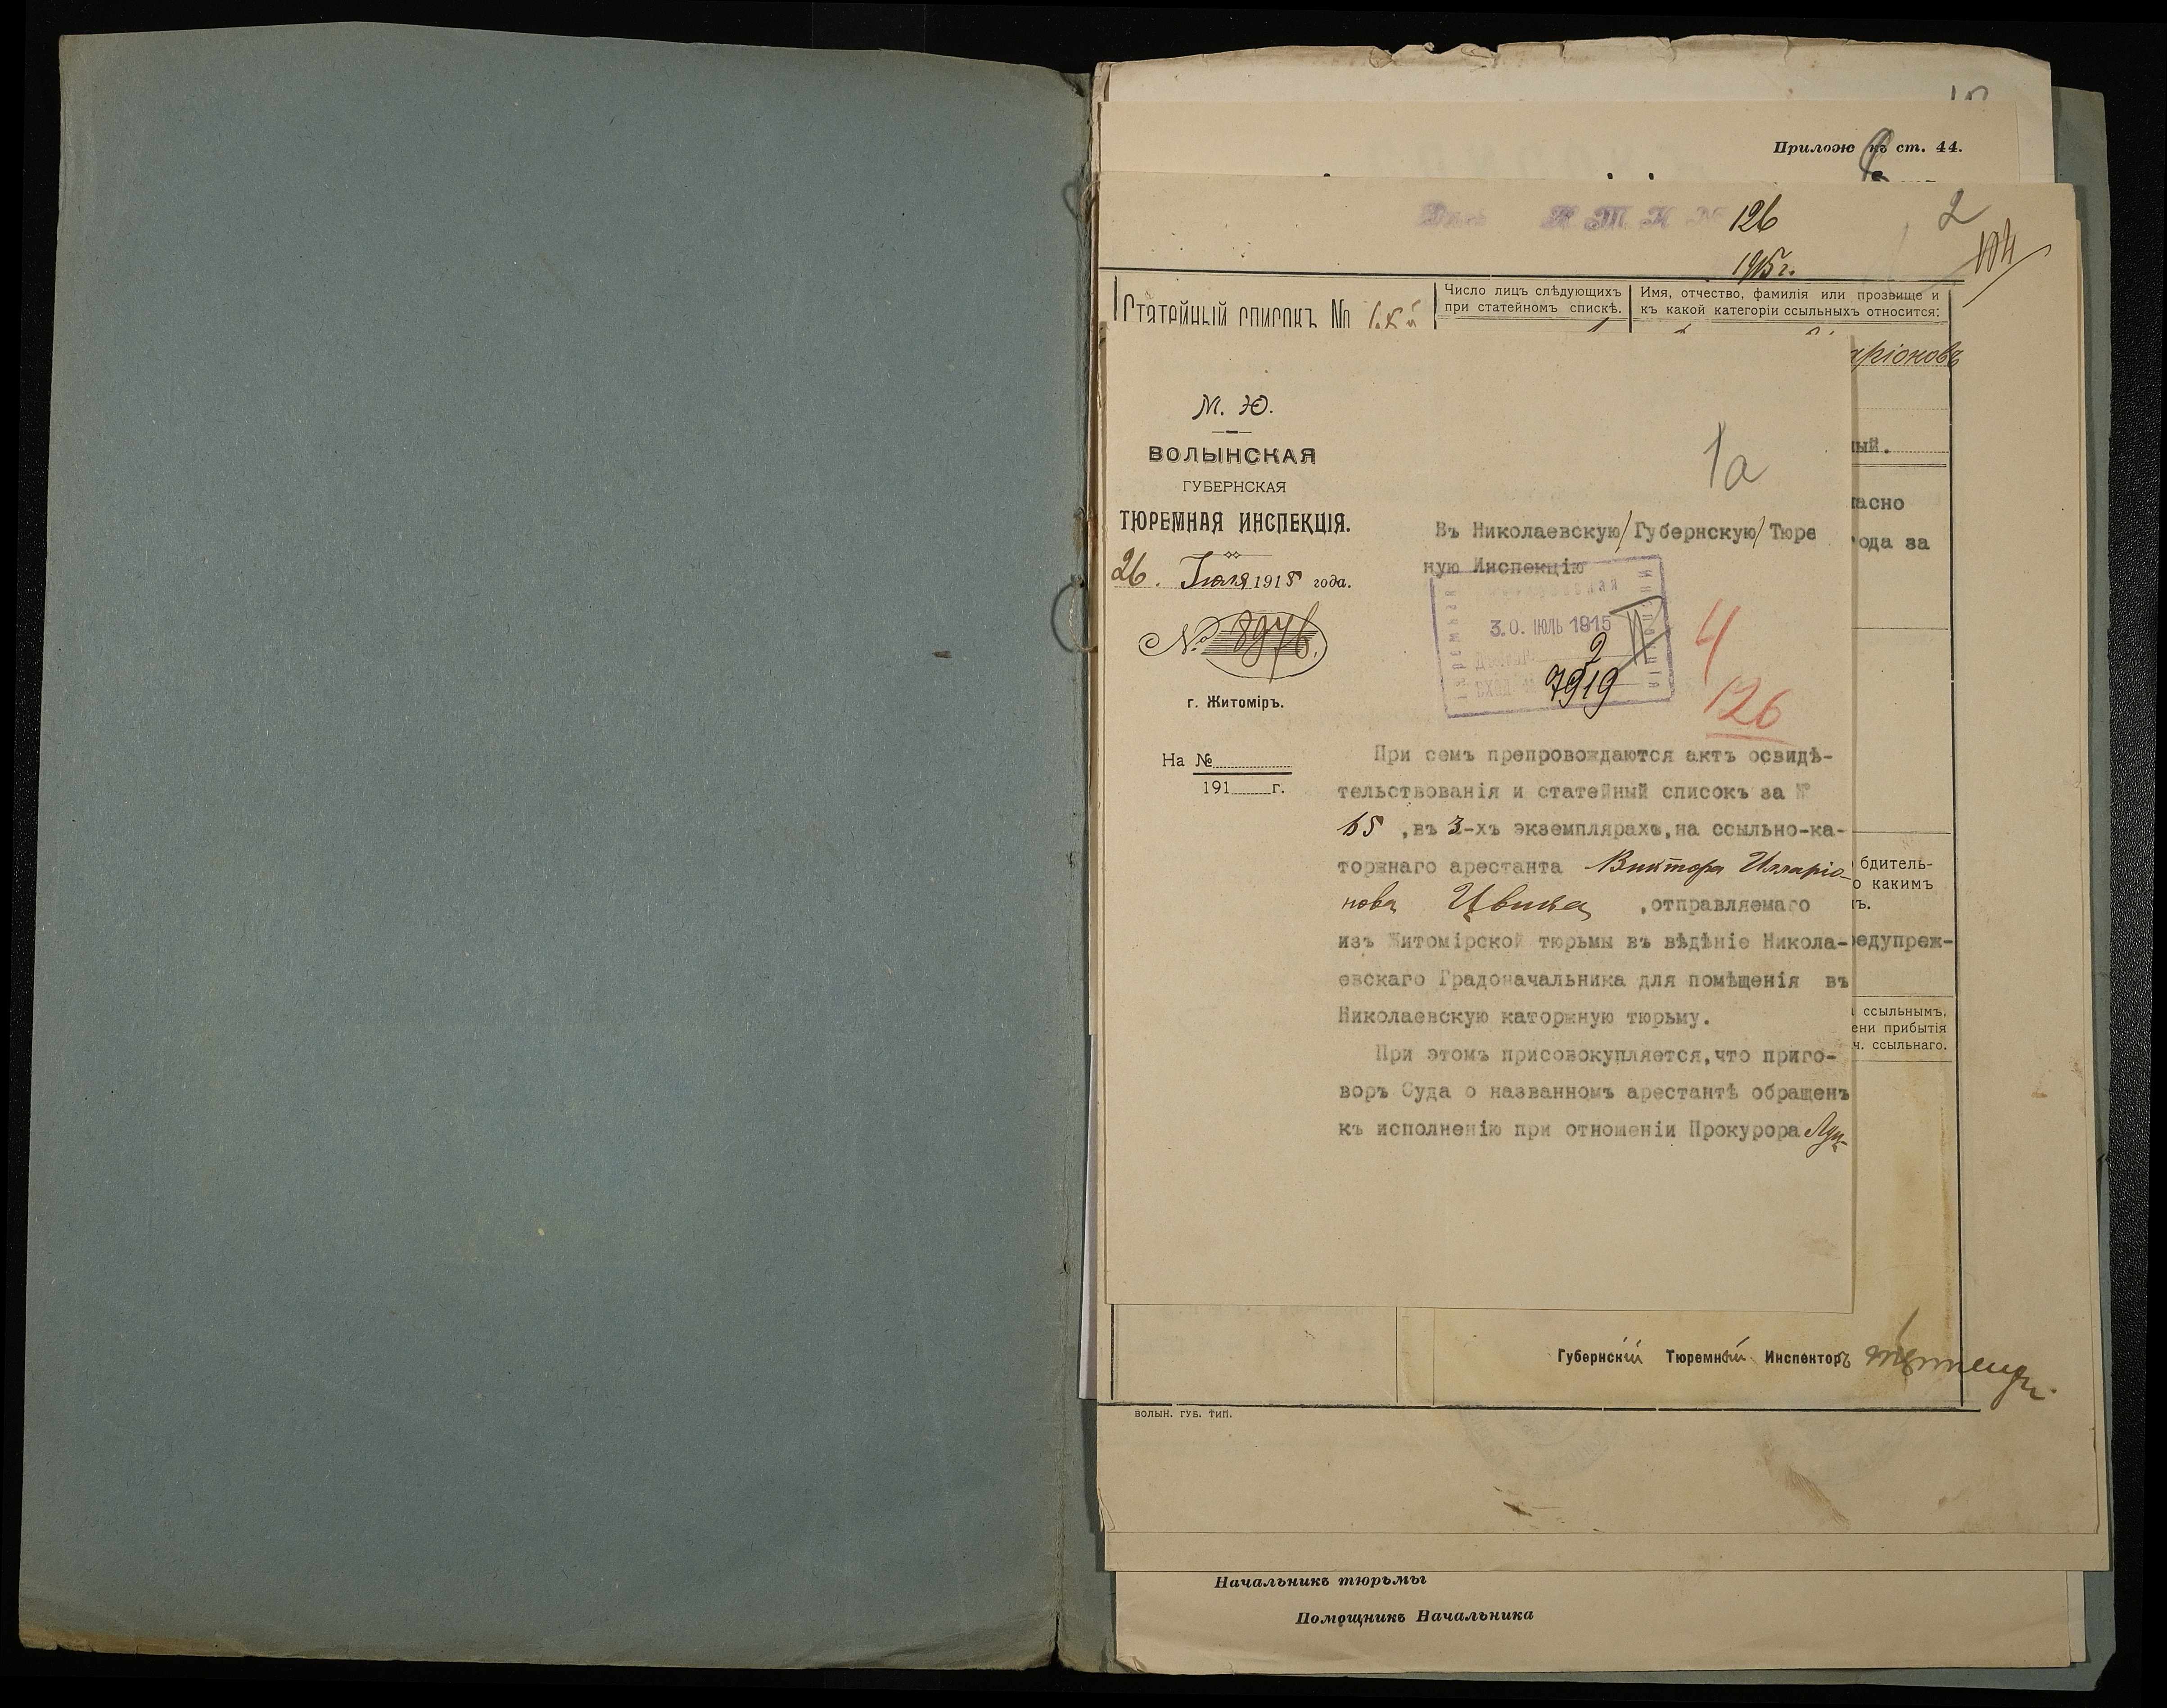 Прилож къ ст. 44.
126
1915 г.
2
104
Статейный списокъ №
Число лицъ слѣдующихъ
при статейномъ спискѣ.
Имя, отчество, фамилія или прозвище и
къ какой категоріи ссыльныхъ относится:
аріоновъ
ный.
ласно
ода за
бдитель-
о какимъ
ъ.
редупреж-
ссыльнымъ,
ени прибытія
ч. ссыльнаго.
М. Ю.
ВОЛЫНСКАЯ
ГУБЕРНСКАЯ
ТЮРЕМНАЯ ИНСПЕКЦІЯ.
26. Іюля 1915 года.
№ 8976.
г. Житоміръ.
На №
191 г.
1а
Въ Николаевскую/Губернскую/Тюре
ную Инспекцію
30 ІЮЛЬ 1915
2
7919
4
126
При семъ препровождаются актъ освидѣ-
тельствованія и статейный списокъ за №
65 ,въ 3-хъ экземплярахъ,на ссыльно-ка-
торжнаго арестанта Виктора Илларіо-
нова Цвика ,отправляемаго
изъ Житомірской тюрьмы въ вѣдѣніе Никола-
евскаго Градоначальника для помѣщенія въ
Николаевскую каторжную тюрьму.
При этомъ присовокупляется,что приго-
воръ Суда о названномъ арестантѣ обращенъ
къ исполненію при отношеніи Прокурора Луц-
Губернскій Тюремный Инспекторъ
ВОЛЫН. ГУБ. ТИП.
Начальникъ тюрьмы
Помощникъ Начальника